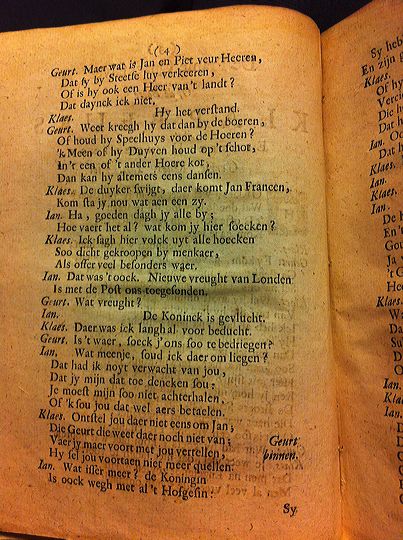 (4)
Geurt. Maer wat is Jan en Piet veur Heeren,
Dat sy by Steetse luy verkeeren,
Of is hy ook een Heer van't landt?
Dat daynck ick niet,
Klaes. Hy het verstand.
Geurt. Weet kreegh hy dat dan by de boeren,
Of houd hy Speelhuys voor de Hoeren?
'k Meen of hy Duyven houd op 't schot,
In't een of 't ander Hoere kot,
Dan kan hy altemets eens dansen.
Klaes. De duyker swijgt, daer komt Jan Fransen,
Kom sta jy nou wat aen een zy.
Jan. Ha, goeden dagh jy alle by;
Hoe vaert het al? wat kom jy hier soecken?
Klaes. Ick sagh hier volck uyt alle hoecken
Soo dicht gekroopen by menkaer,
Als offer veel besonders waer.
Jan. Dat was't oock. Nieuwe vreught van Londen
Is met de Post ons toegesonden.
Geurt. Wat vreught?
Jan. De Koninck is gevlucht.
Klaes. Daer was ick langh al voor beducht.
Geurt. Is't waer, soeck j'ons soo te bedriegen?
Jan. Wat meenje, soud ick daer om liegen?
Dat had ik noyt verwacht van jou,
Dat jy mijn dat toe dencken sou:
Je moest mijn soo niet achterhalen,
Of 'k sou jou dat wel aers betaelen.
Klaes. Ontstel jou daer niet eens om Jan;
Die Geurt die weet daer noch niet van;
Vaer jy maer voort met jou vertellen,
Hy sel jou voortaen niet meer quellen.
Geurt
binnen.
Jan. Wat isser meer? de Koningin
Is oock wegh met al 't Hofgesin:
Sy
Sy heb
En zijn
Klaes.
Of hy
Die h
Dat h
Klaes.
Jan.
Klaes.
Jan.